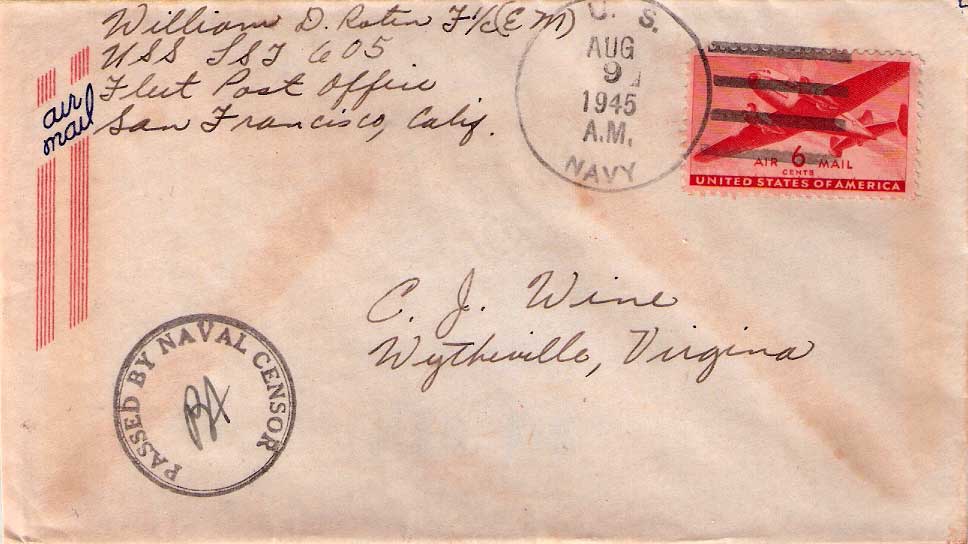 William D. Roten F1/c(EM)
USS LST 605
Fleet Post Office
San Francisco, Calif.
air
mail
U. S.
AUG
9
1945
A.M.
NAVY
AIR 6 MAIL
CENTS
UNITED STATES OF AMERICA
C. J. Wine
Wytheville, Virgina
PASSED BY NAVAL CENSOR